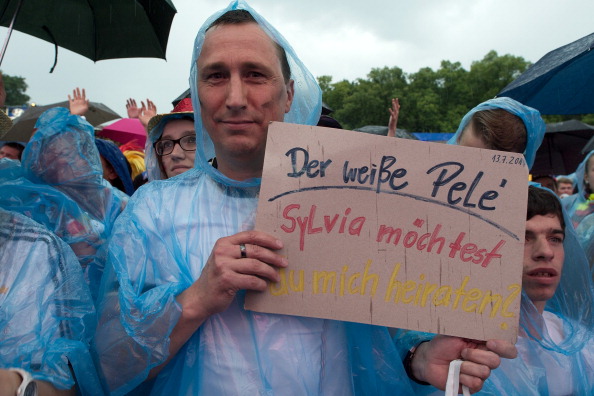 13.7.2014
Der weiße Pelé
Sylvia möchtest
du mich heiraten?